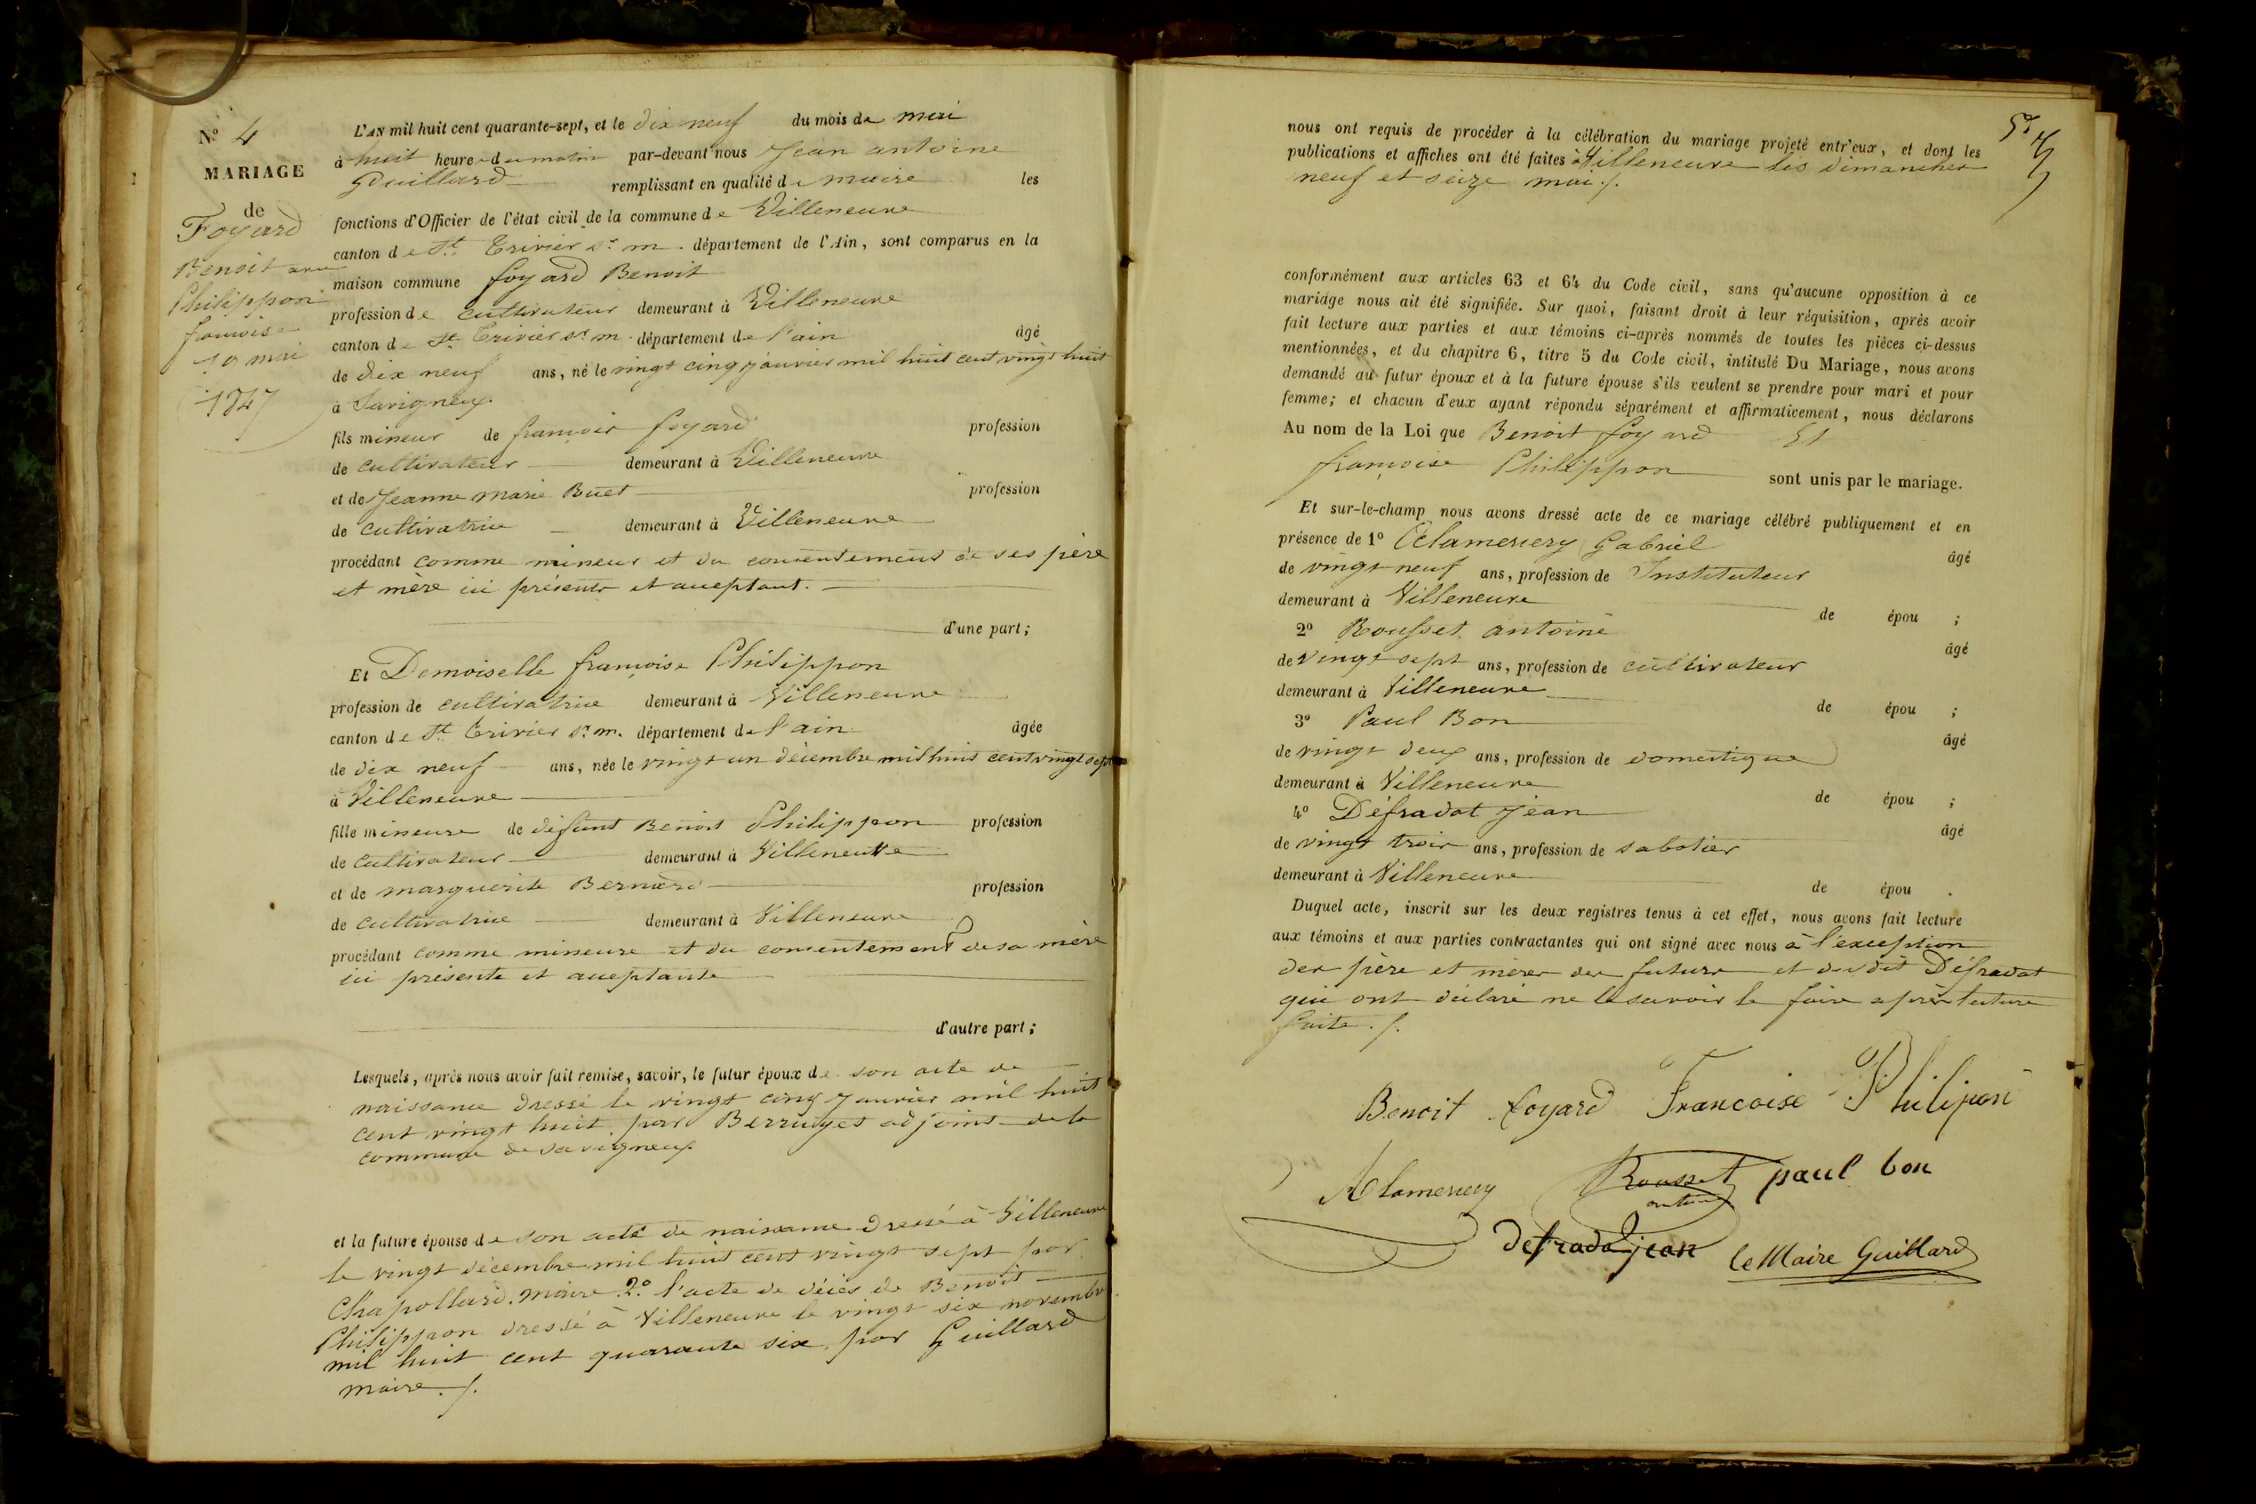 N° 4
MARIAGE
de
Foyard
Benoit avec
Philippon
françoise
19 mai
1847
L'AN mil huit cent quarante-sept, et le dix neuf du mois de mai
à huit heures du matin par-devant nous Jean antoine
Guillard remplissant en qualité de maire les
fonctions d'Officier de l'état civil de la commune de Villeneuve
canton de St. Trivier sr. m. département de l'Ain, sont comparus en la
maison commune foyard Benoit
profession de cultivateur demeurant à Villeneuve
canton de St. Trivier sr. m. département de l'ain âgé
de dix neuf ans, né le vingt cinq janvier mil huit cent vingt huit
à Savigneux
fils mineur de françois foyard profession
de cultivateur demeurant à Villeneuve
et de Jeanne marie Buet profession
de cultivatrice demeurant à Villeneuve
procédant comme mineur et du consentement de ses père
et mère ici présents et acceptant.
d'une part;
Et Demoiselle françoise Philippon
profession de cultivatrice demeurant à Villeneuve
canton de St. Trivier sr. m. département de l'ain âgée
de dix neuf ans, née le vingt un décembre mil huit cent vingt sept
à Villeneuve
fille mineure de défunt Benoit Philippon profession
de cultivateur demeurant à Villeneuve
et de marguerite Bernard profession
de cultivatrice demeurant à Villeneuve
procédant comme mineure et du consentement de sa mère
ici présente et acceptante
d'autre part;
Lesquels, après nous avoir fait remise, savoir, le futur époux de son acte de
naissance dressé le vingt cinq janvier mil huit
cent vingt huit par Berruyet adjoint de la
commune de Savigneux
et la future épouse de son acte de naissance dressé à Villeneuve
le vingt décembre mil huit cent vingt sept par
Chapollard. maire 2.° l'acte de décès de Benoit
Philippon dressé à Villeneuve le vingt six novembre
mil huit cent quarante six par Guillard
maire ./.
nous ont requis de procéder à la célébration du mariage projeté entr'eux, et dont les
publications et affiches ont été faites à Villeneuve les dimanches
neuf et seize mai ./.
conformément aux articles 63 et 64 du Code civil, sans qu'aucune opposition à ce
mariage nous ait été signifiée. Sur quoi, faisant droit à leur réquisition, après avoir
fait lecture aux parties et aux témoins ci-après nommés de toutes les pièces ci-dessus
mentionnées, et du chapitre 6, titre 5 du Code civil, intitulé Du Mariage, nous avons
demandé au futur époux et à la future épouse s'ils veulent se prendre pour mari et pour
femme; et chacun d'eux ayant répondu séparément et affirmativement, nous déclarons
Au nom de la Loi que Benoit foyard Et
françoise Philippon sont unis par le mariage.
Et sur-le-champ nous avons dressé acte de ce mariage célébré publiquement et en
présence de 1° Gabriel
âgé
de vingt neuf ans, profession de Instituteur
demeurant à Villeneuve
de épou ;
2° Rousset antoine
âgé
de vingt sept ans, profession de cultivateur
demeurant à Villeneuve
de épou ;
3° Paul Bon
âgé
de vingt deux ans, profession de domestique
demeurant à Villeneuve
de épou ;
4° Défradat Jean
âgé
de vingt trois ans, profession de sabotier
demeurant à Villeneuve
de épou .
Duquel acte, inscrit sur les deux registres tenus à cet effet, nous avons fait lecture
aux témoins et aux parties contractantes qui ont signé avec nous à l'exception
des père et mères des futurs et du dit Défradat
qui ont déclaré ne le savoir le faire après lecture
faite ./.
Benoit foyard Francoise Philipon
Rousset antoine paul bon
defradat jean le Maire Guillard